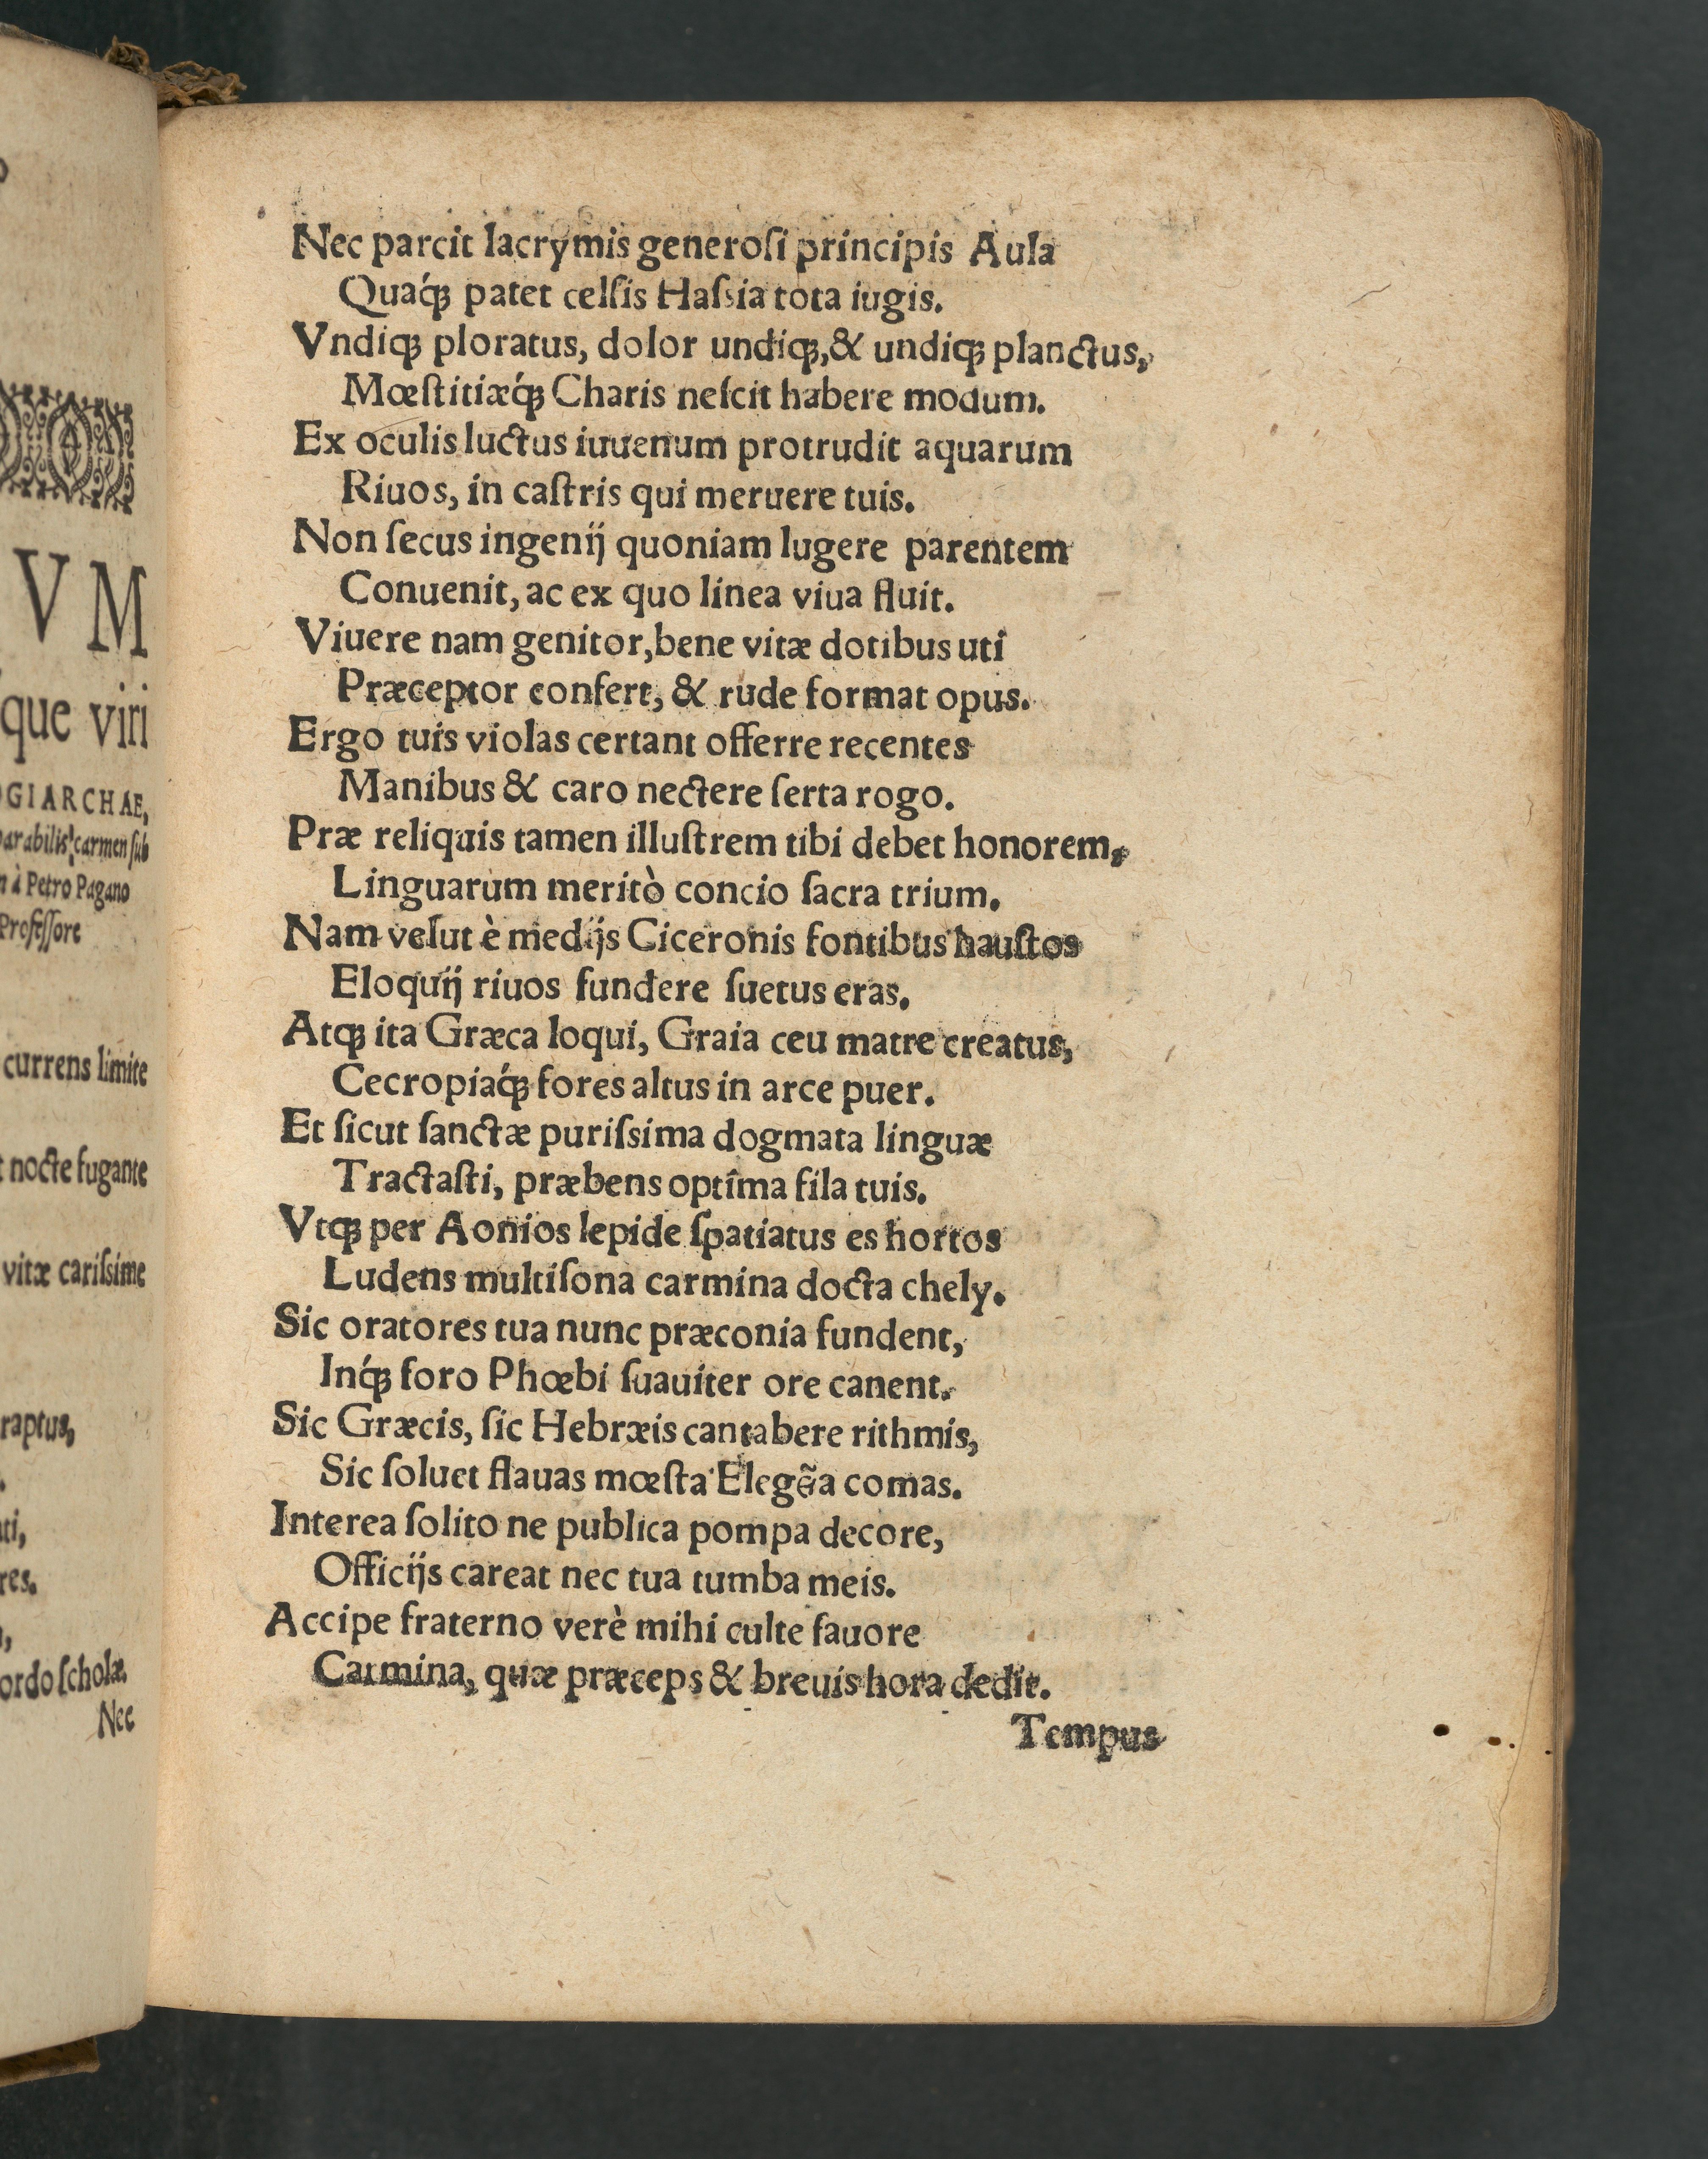 V M
que viri
OGIARCHAE,
parabilis carmen sub
n à Petro Pagano
Professore
currens limite
t nocte fugante
vitæ carissime
raptus,
res.
ordo scholæ
Nec
Nec parcit lacrymis generosi principis Aula
Quaq́ꝫ patet celsis Hassia tota iugis.
Vndiqꝫ ploratus, dolor undiqꝫ,& undiqꝫ planctus,
Mœstitiæq́ꝫ Charis nescit habere modum.
Ex oculis luctus iuuenum protrudit aquarum
Riuos, in castris qui meruere tuis.
Non secus ingenij quoniam lugere parentem
Conuenit, ac ex quo linea viua fluit.
Viuere nam genitor,bene vitæ dotibus uti
Præceptor confert, & rude format opus.
Ergo tuis violas certant offerre recentes
Manibus & caro nectere serta rogo.
Præ reliquis tamen illustrem tibi debet honorem,
Linguarum meritò concio sacra trium.
Nam velut è medijs Ciceronis fontibus haustos
Eloquij riuos fundere suetus eras.
Atqꝫ ita Græca loqui, Graia ceu matre creatus,
Cecropiaq́ꝫ fores altus in arce puer.
Et sicut sanctæ purissima dogmata linguæ
Tractasti, præbens optima fila tuis.
Vtqꝫ per Aonios lepide spatiatus es hortos
Ludens multisona carmina docta chely.
Sic oratores tua nunc præconia fundent,
Inq́ꝫ foro Phœbi suauiter ore canent.
Sic Græcis, sic Hebræis cantabere rithmis,
Sic soluet flauas mœsta Elegẽa comas.
Interea solito ne publica pompa decore,
Officijs careat nec tua tumba meis.
Accipe fraterno verè mihi culte fauore
Carmina, quæ præceps & breuis hora dedit.
Tempus